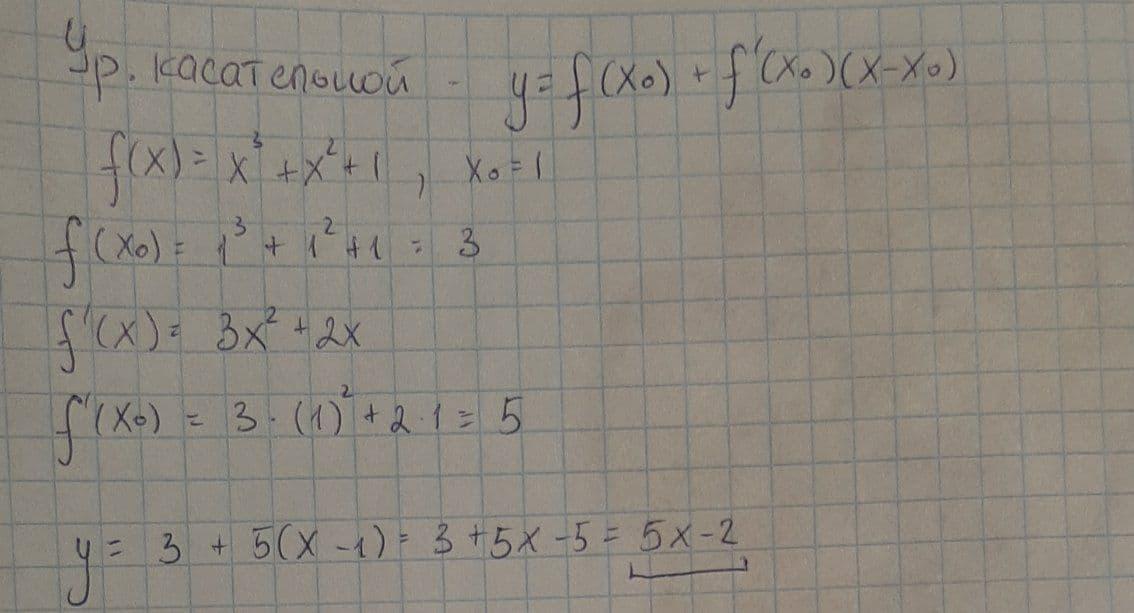 Ур. касательной - y = f(x₀) + f'(x₀)(x-x₀)
f(x) = x³ + x² + 1 , x₀ = 1
f(x₀) = 1³ + 1² + 1 = 3
f'(x) = 3x² + 2x
f'(x₀) = 3 · (1)² + 2 · 1 = 5
y = 3 + 5(x - 1) = 3 + 5x - 5 = 5x - 2